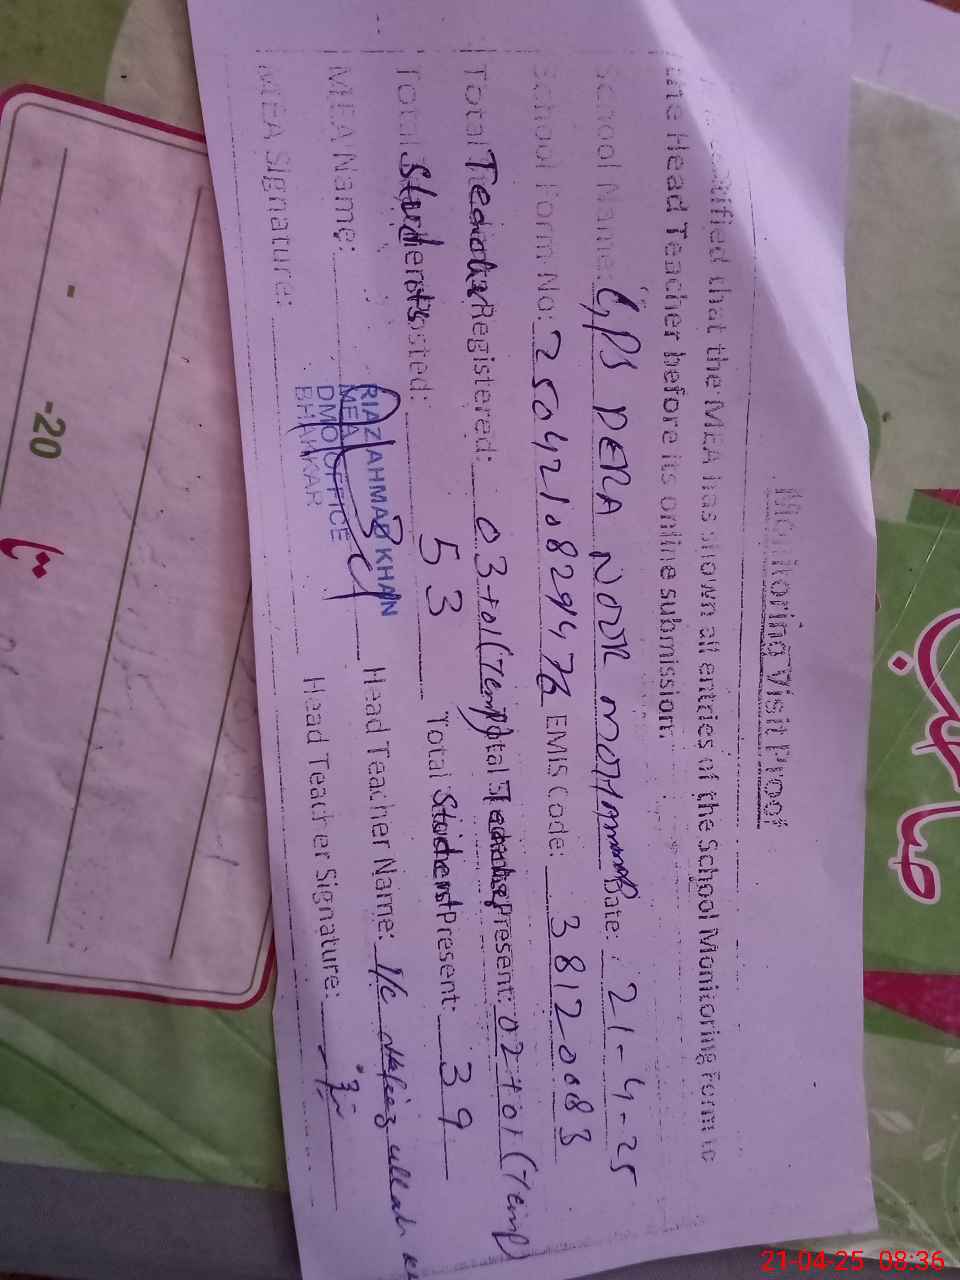 Monitoring Visit Proof
certified that the MEA has shown all entries of the School Monitoring Form to
the Head Teacher before its online submission.
School Name: GPS DERA NOOR MOHAMMAD Date: 21-4-25
School Form No: EMIS Code: 38120083
Total Teacher Registered: 03+01(Temp) Total Teacher Present: 02+01(Temp)
Total Students Posted: 53 Total Student Present: 39
MEA Name: Head Teacher Name: I/C ullah
MEA Signature: Head Teacher Signature:
RIAZ AHMAD KHAN
MEA
DMO OFFICE
BHAKKAR
صاحب
-20
21-04-25 08:36